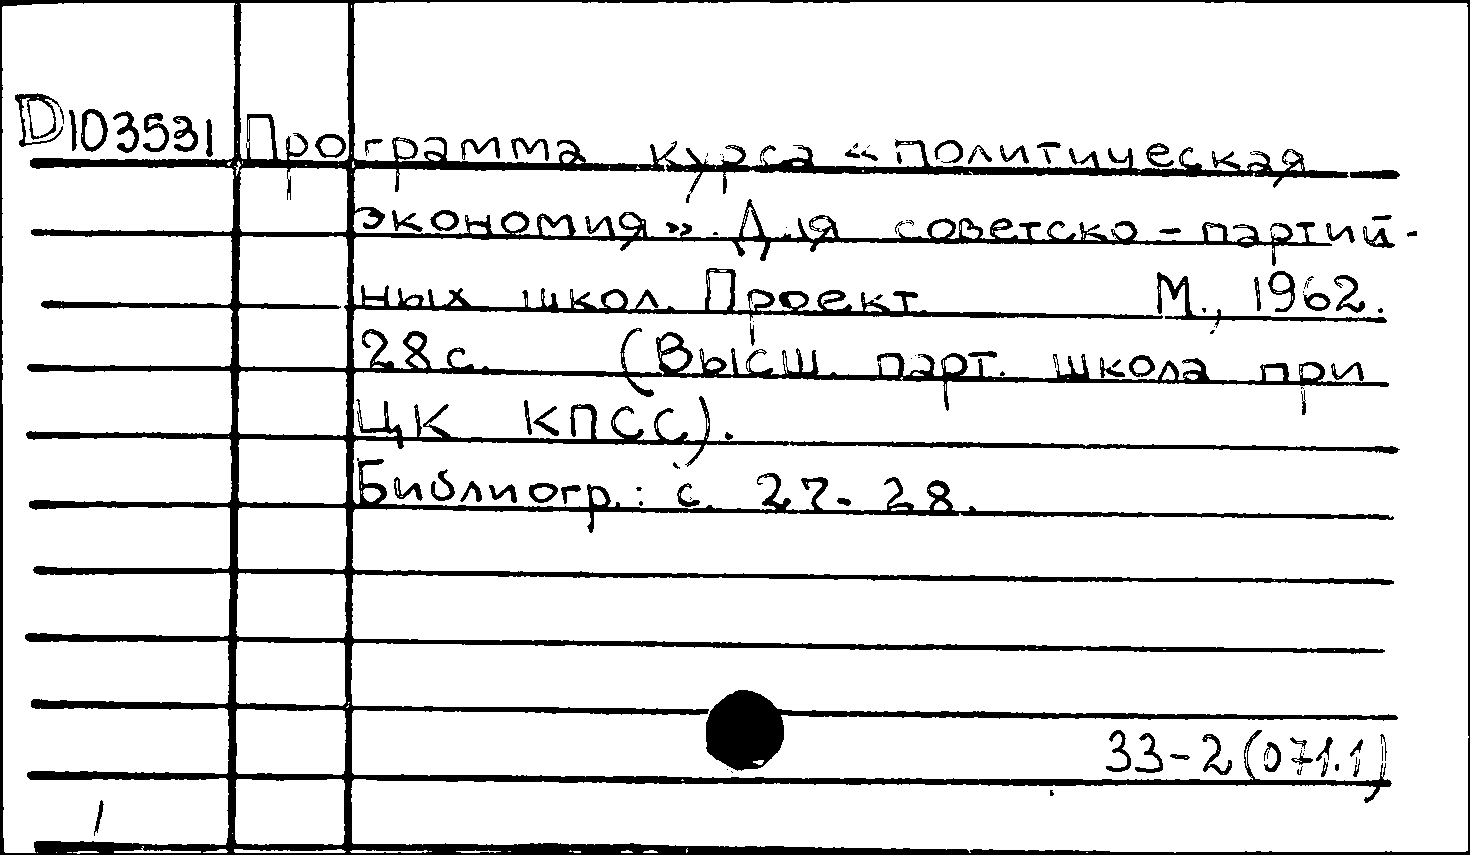 D103531 Программа курса «политическая
экономия». Для советско-партий-
ных школ. Проект. М., 1962.
28 с. (Высш. парт. школа при
ЦК КПСС).
Библиогр.: с. 27-28.
33-2(071.1)
1